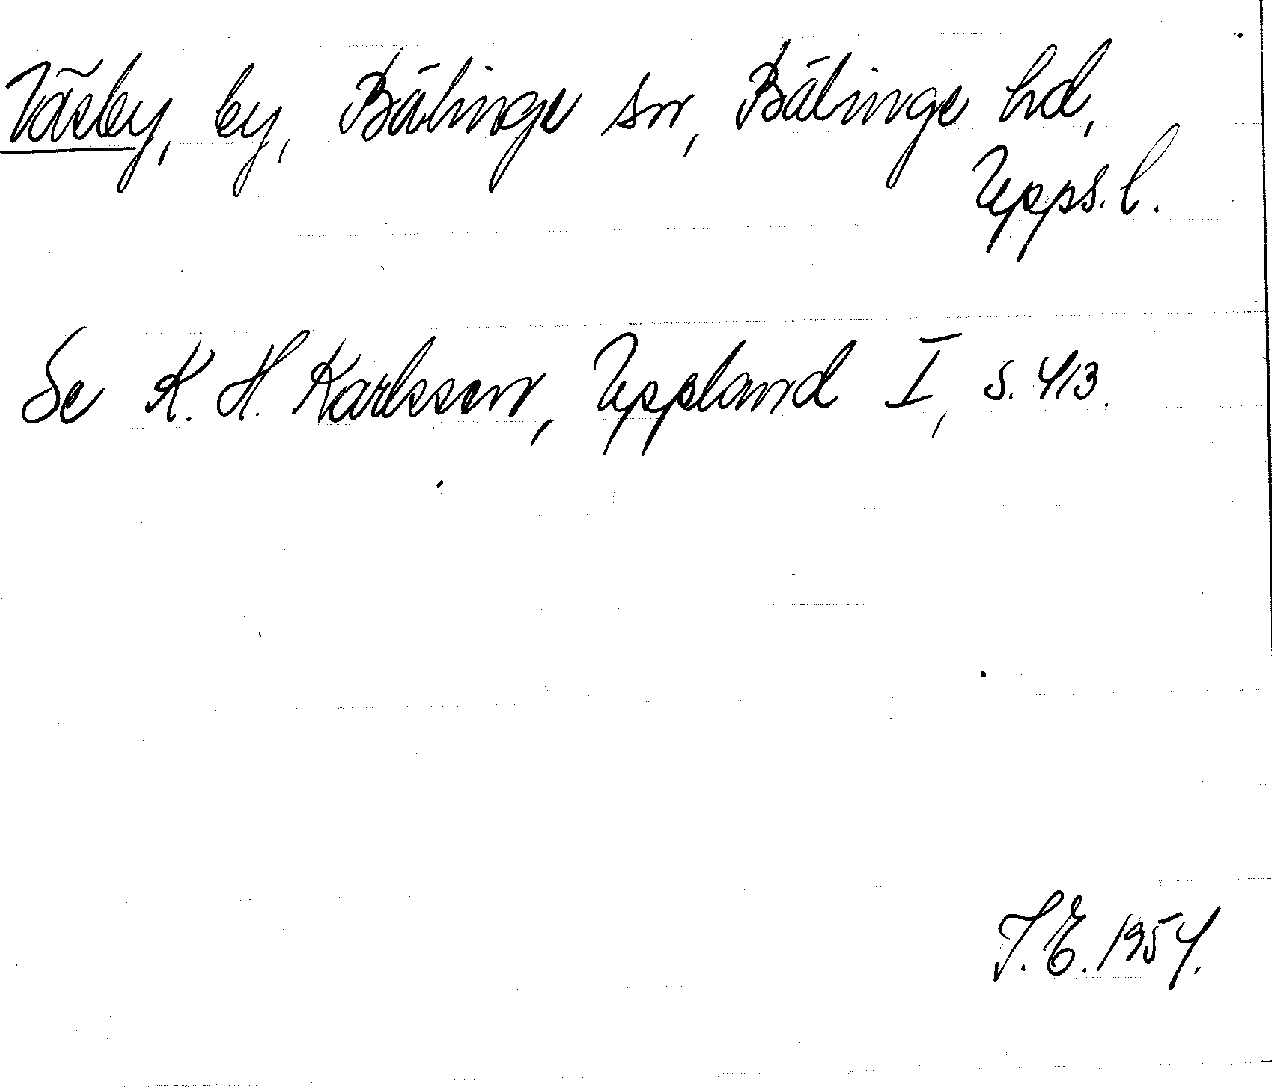 Väsby, by, Bälinge sn, Bälinge hd,
Upps. l.
Se K. H. Karlsson, Uppland I, s. 413.
T. E. 1954.